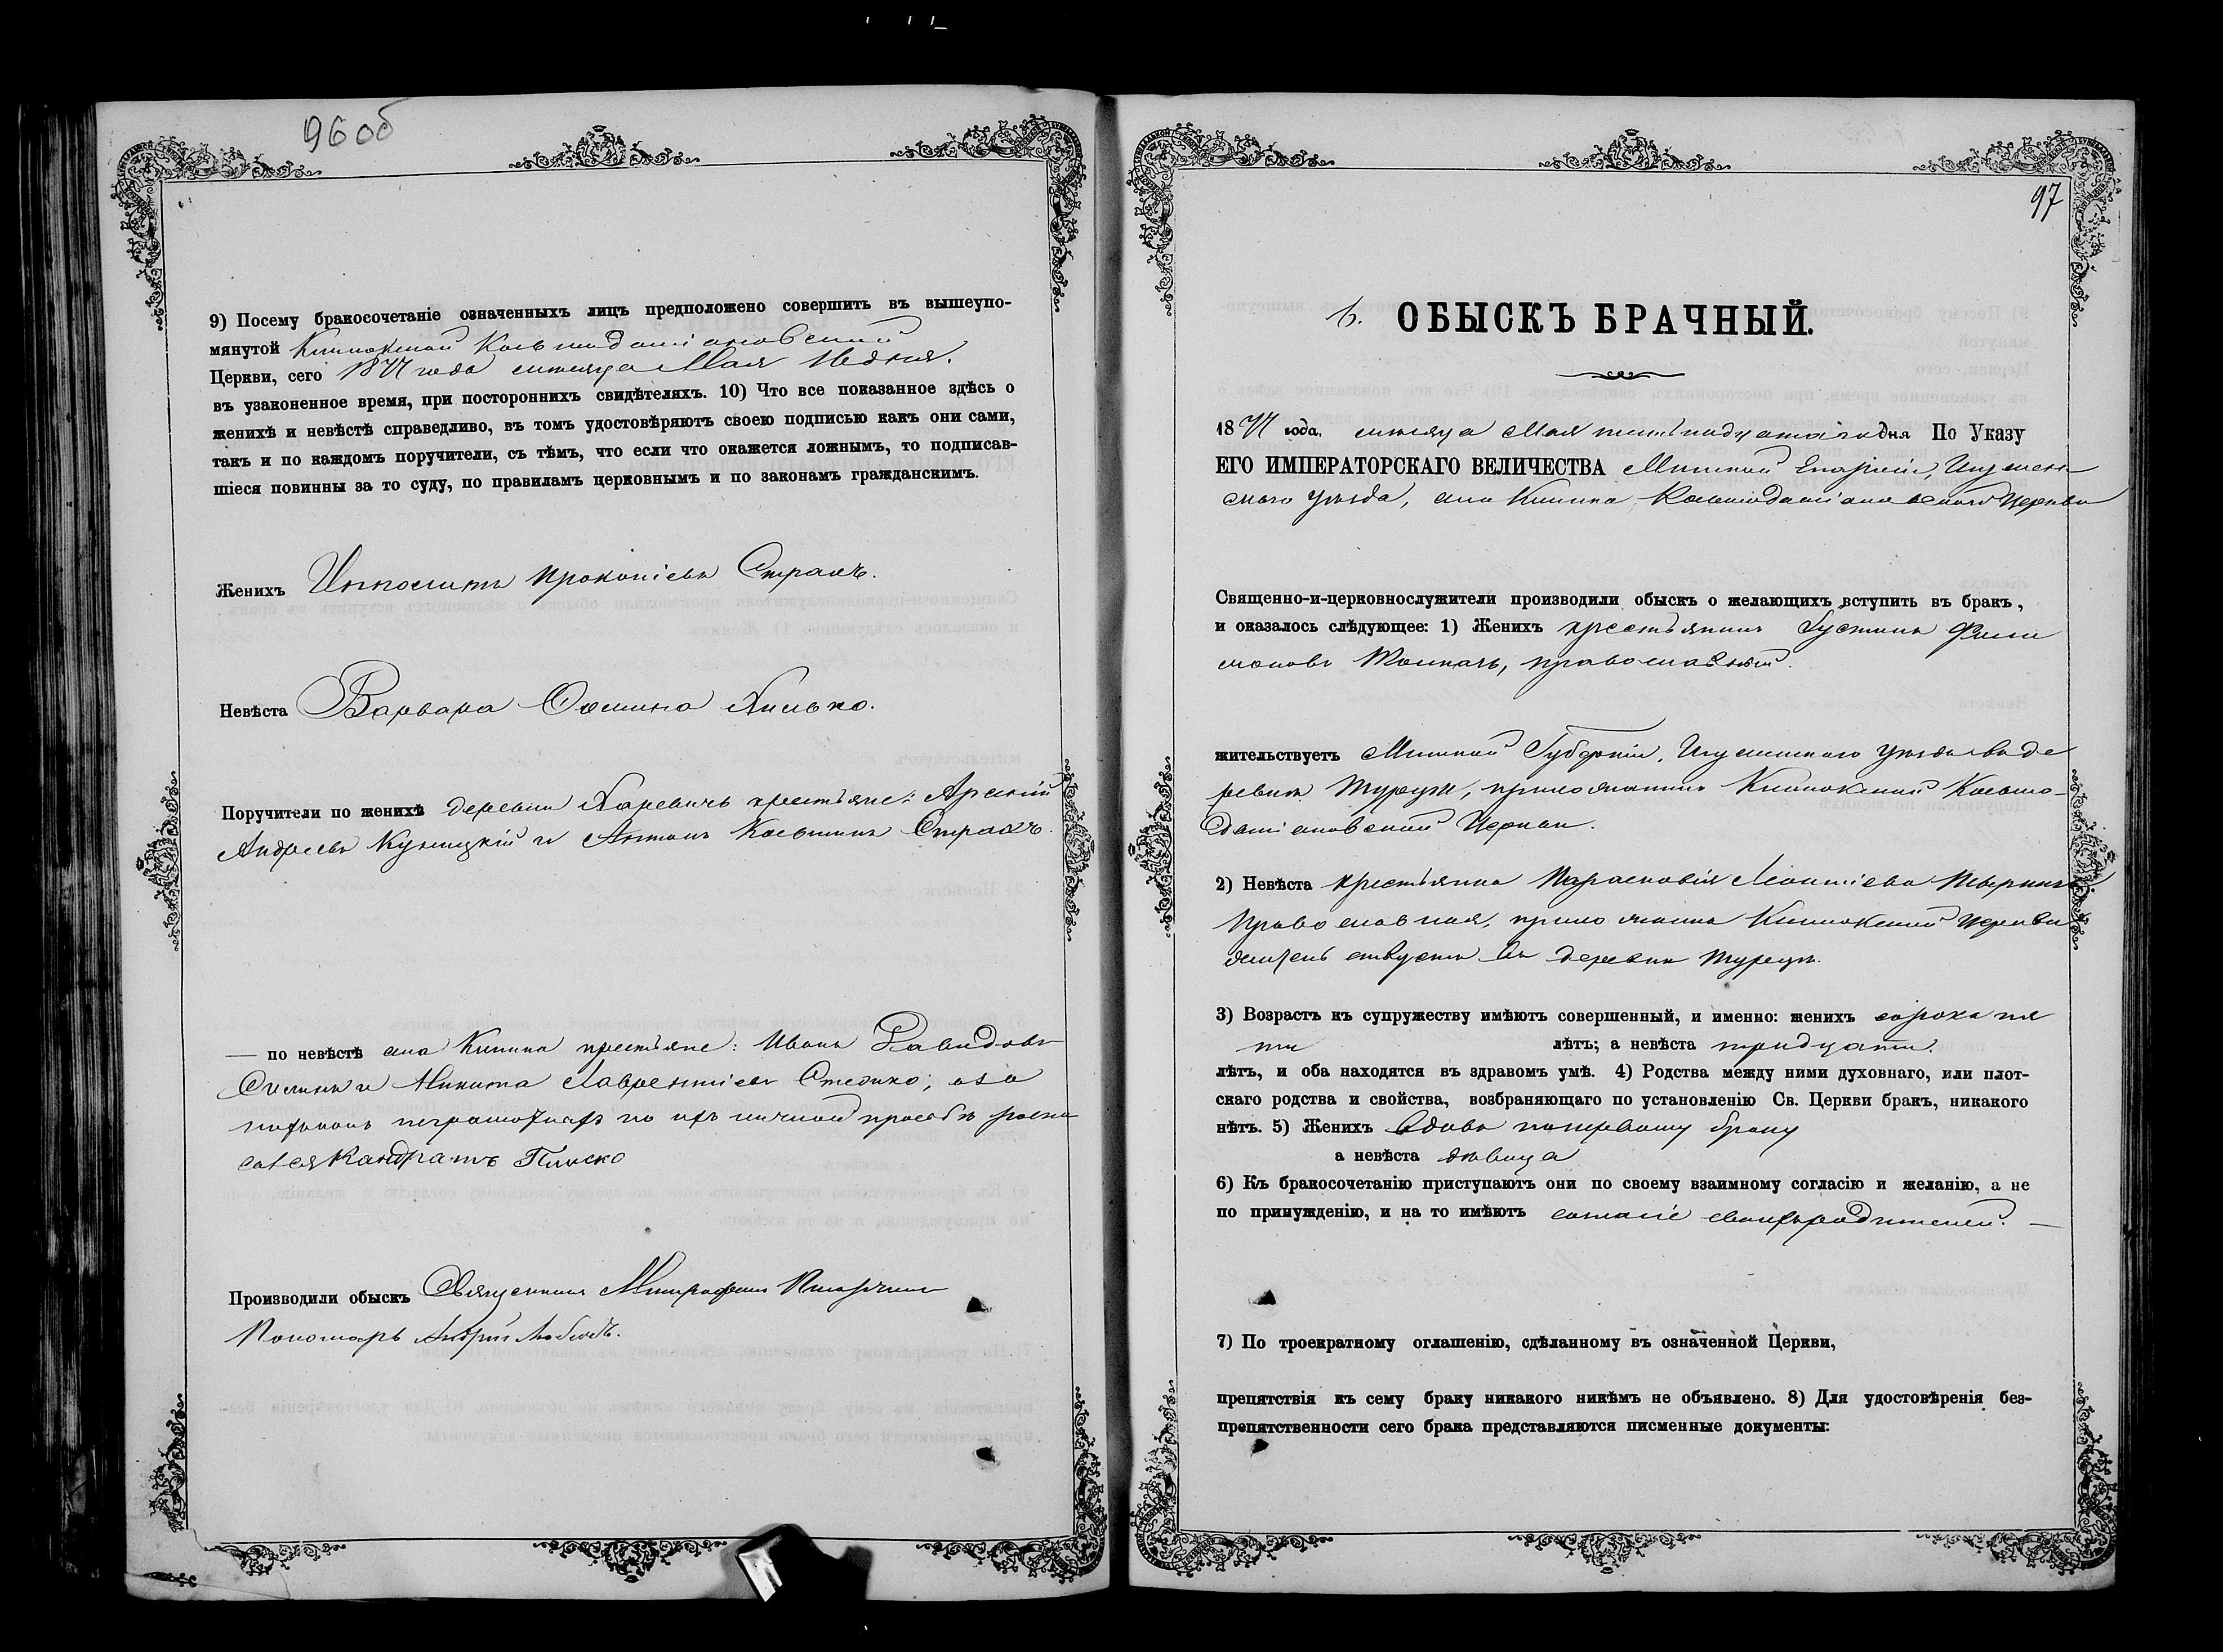 96об
9) Посему бракосочетаніе означенныхъ лицъ предположено совершить въ вышеупо-
мянутой
Церкви, сего года мѣсяца Мая дня.
въ узаконенное время, при постороннихъ свидѣтеляхъ. 10) Что все показанное здѣсь о
женихѣ и невѣстѣ справедливо, въ томъ удостовѣряютъ своею подписью какъ они сами,
такъ и по каждомъ поручители, съ тѣмъ, что если что окажется ложнымъ, то подписав-
шіеся повинны за то суду, по правиламъ церковнымъ и по законамъ гражданскимъ.
Женихъ Ипполитъ Прокопіевъ Страхъ.
Невѣста Варвара Ѳомина
Поручители по женихѣ деревни крестьяне: Арсеній
Андреевъ Куницкій и Антонъ Косьминъ Страхъ.
— по невѣстѣ крестьяне: Иванъ Давидовъ
и Никита Лаврентіевъ а за
неграмотныхъ по ихъ личной просьбѣ роспи
сался Кандратъ
Производили обыскъ Священникъ Митрофанъ
Пономарь Андрей
97
6. ОБЫСКЪ БРАЧНЫЙ.
18 года, мѣсяца Мая дня По Указу
ЕГО ИМПЕРАТОРСКАГО ВЕЛИЧЕСТВА Минской Епархіи, Игумен-
скаго уѣзда, Косьмодаміановской Церкви
Священно-и-церковнослужители производили обыскъ о желающихъ вступить въ бракъ,
и оказалось слѣдующее: 1) Женихъ крестьянинъ Іустинъ Фили
моновъ Толкачъ, православный.
жительствуетъ Минской Губерніи, Игуменскаго уѣзда въ де
ревни Турецъ, прихожанинъ Косьмо-
даміановской Церкви.
2) Невѣста крестьянка Парасковія Леонтіева
Православная, прихожанка Церкви
жительствуетъ въ деревни Турецъ.
3) Возрастъ къ супружеству имѣютъ совершенный, и именно: женихъ сорока пя
ти лѣтъ; а невѣста тридцати.
лѣтъ, и оба находятся въ здравомъ умѣ. 4) Родства между ними духовнаго, или плот-
скаго родства и свойства, возбраняющаго по установленію Св. Церкви бракъ, никакого
нѣтъ. 5) Женихъ вдовъ по первому браку
а невѣста дѣвица
6) Къ бракосочетанію приступаютъ они по своему взаимному согласію и желанію, а не
по принужденію, и на то имѣютъ согласіе своихъ родителей. —
7) По троекратному оглашенію, сдѣланному въ означенной Церкви,
препятствія къ сему браку никакого никѣмъ не объявлено. 8) Для удостовѣренія без-
препятственности сего брака представляются писменные документы: